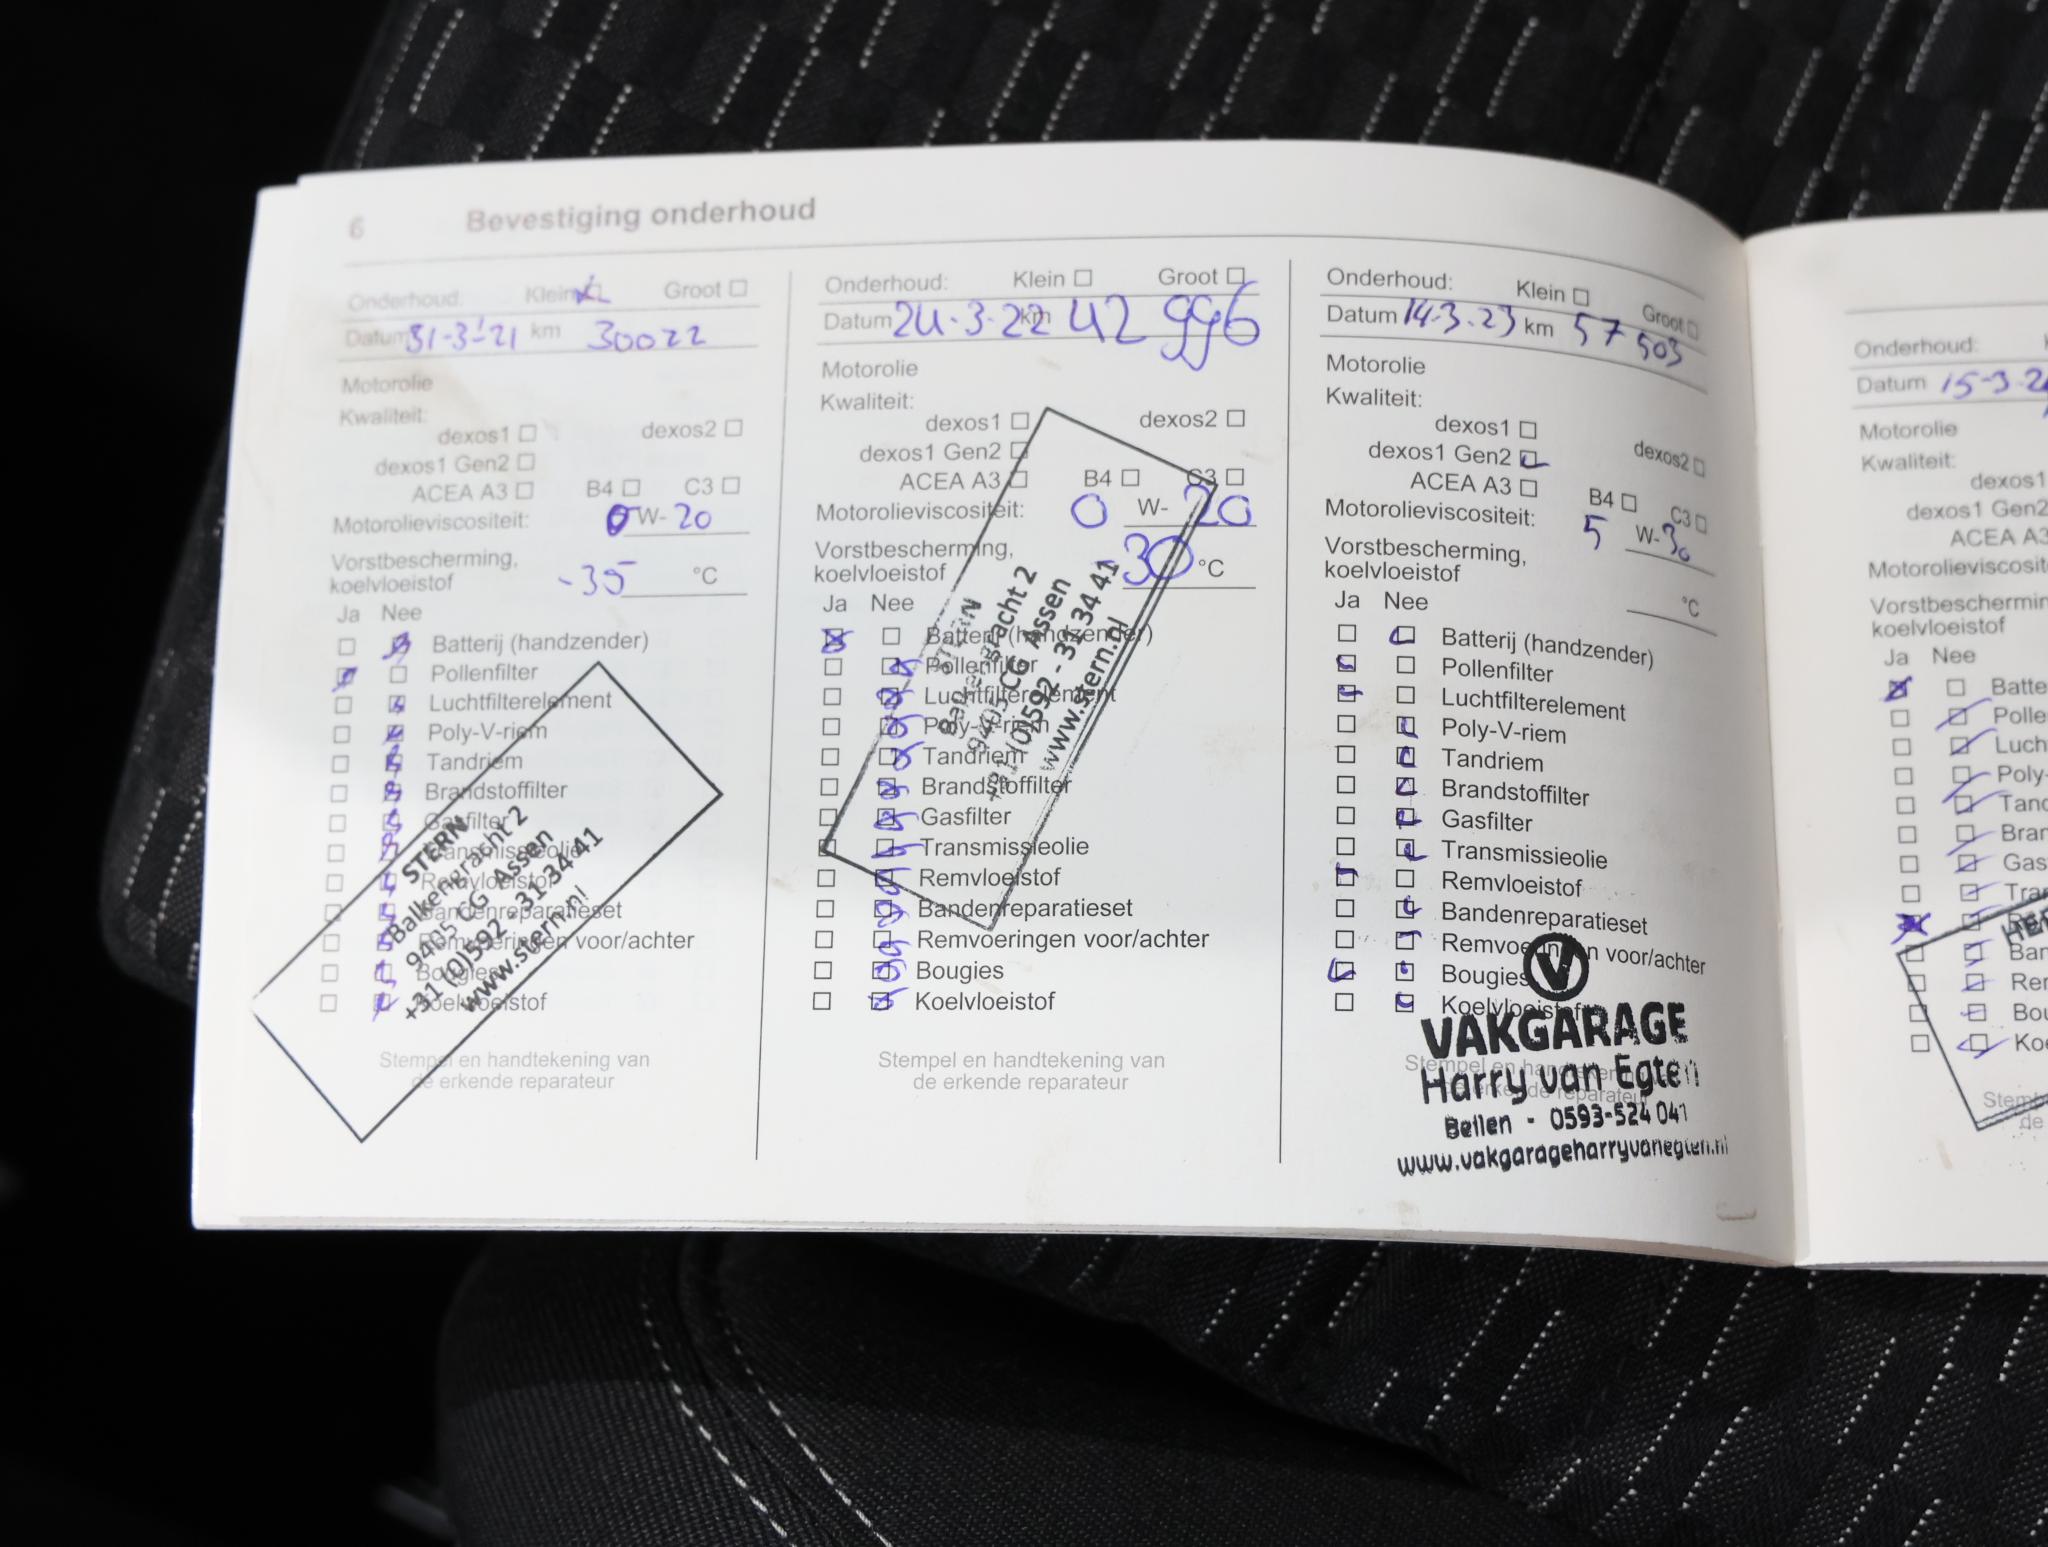 6 Bevestiging onderhoud
Onderhoud: Klein Groot
Datum 31-3-'21 km 30022
Motorolie
Kwaliteit:
dexos1 dexos2
dexos1 Gen2
ACEA A3 B4 C3
Motorolieviscositeit: 0 W- 20
Vorstbescherming,
koelvloeistof -35 °C
Ja Nee
Batterij (handzender)
Pollenfilter
Luchtfilterelement
Poly-V-riem
Tandriem
Brandstoffilter
Gasfilter
Transmissieolie
Remvloeistof
Bandenreparatieset
Remvoeringen voor/achter
Bougies
Koelvloeistof
STERN
Balkengracht 2
9405 CG Assen
+31 (0)592 - 31 34 41
www.stern.nl
Stempel en handtekening van
de erkende reparateur
Onderhoud: Klein Groot
Datum 24-3-22 km 42 996
Motorolie
Kwaliteit:
dexos1 dexos2
dexos1 Gen2
ACEA A3 B4 C3
Motorolieviscositeit: 0 W- 20
Vorstbescherming,
koelvloeistof -30 °C
Ja Nee
Batterij (handzender)
Pollenfilter
Luchtfilterelement
Poly-V-riem
Tandriem
Brandstoffilter
Gasfilter
Transmissieolie
Remvloeistof
Bandenreparatieset
Remvoeringen voor/achter
Bougies
Koelvloeistof
STERN
Balkengracht 2
9405 CG Assen
+31 (0)592 - 31 34 41
www.stern.nl
Stempel en handtekening van
de erkende reparateur
Onderhoud: Klein Groot
Datum 14-3-23 km 57 503
Motorolie
Kwaliteit:
dexos1 dexos2
dexos1 Gen2
ACEA A3 B4 C3
Motorolieviscositeit: 5 W-30
Vorstbescherming,
koelvloeistof °C
Ja Nee
Batterij (handzender)
Pollenfilter
Luchtfilterelement
Poly-V-riem
Tandriem
Brandstoffilter
Gasfilter
Transmissieolie
Remvloeistof
Bandenreparatieset
Remvoeringen voor/achter
Bougies
Koelvloeistof
Stempel en handtekening van
de erkende reparateur
V
VAKGARAGE
Harry van Egten
Beilen - 0593-524 041
www.vakgarageharryvanegten.nl
Onderhoud:
Datum 15-3-2
Motorolie
Kwaliteit:
dexos1
dexos1 Gen2
ACEA A3
Motorolieviscosit
Vorstbeschermin
koelvloeistof
Ja Nee
Batte
Polle
Luch
Poly-
Tand
Bran
Gas
Tra
Ban
Rem
Bou
Koe
Stemp
de